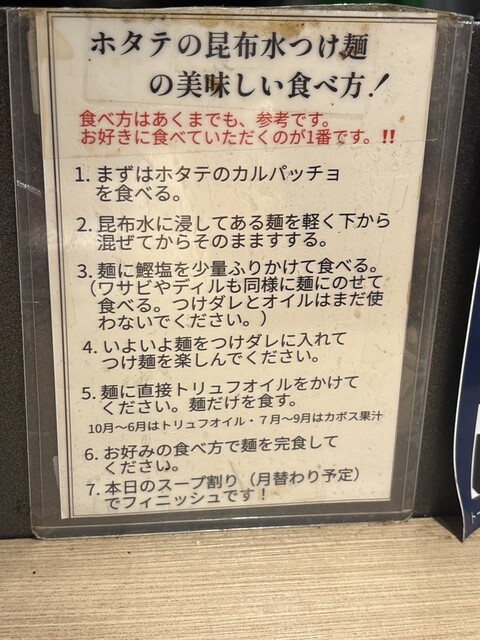 ホタテの昆布水つけ麺
の美味しい食べ方！
食べ方はあくまでも、参考です。
お好きに食べていただくのが1番です。‼
1. まずはホタテのカルパッチョ
を食べる。
2. 昆布水に浸してある麺を軽く下から
混ぜてからそのまますする。
3. 麺に鰹塩を少量ふりかけて食べる。
（ワサビやディルも同様に麺にのせて
食べる。つけダレとオイルはまだ使
わないでください。）
4. いよいよ麺をつけダレに入れて
つけ麺を楽しんでください。
5. 麺に直接トリュフオイルをかけて
ください。麺だけを食す。
10月〜6月はトリュフオイル・７月〜9月はカボス果汁
6. お好みの食べ方で麺を完食して
ください。
7. 本日のスープ割り（月替わり予定）
でフィニッシュです！